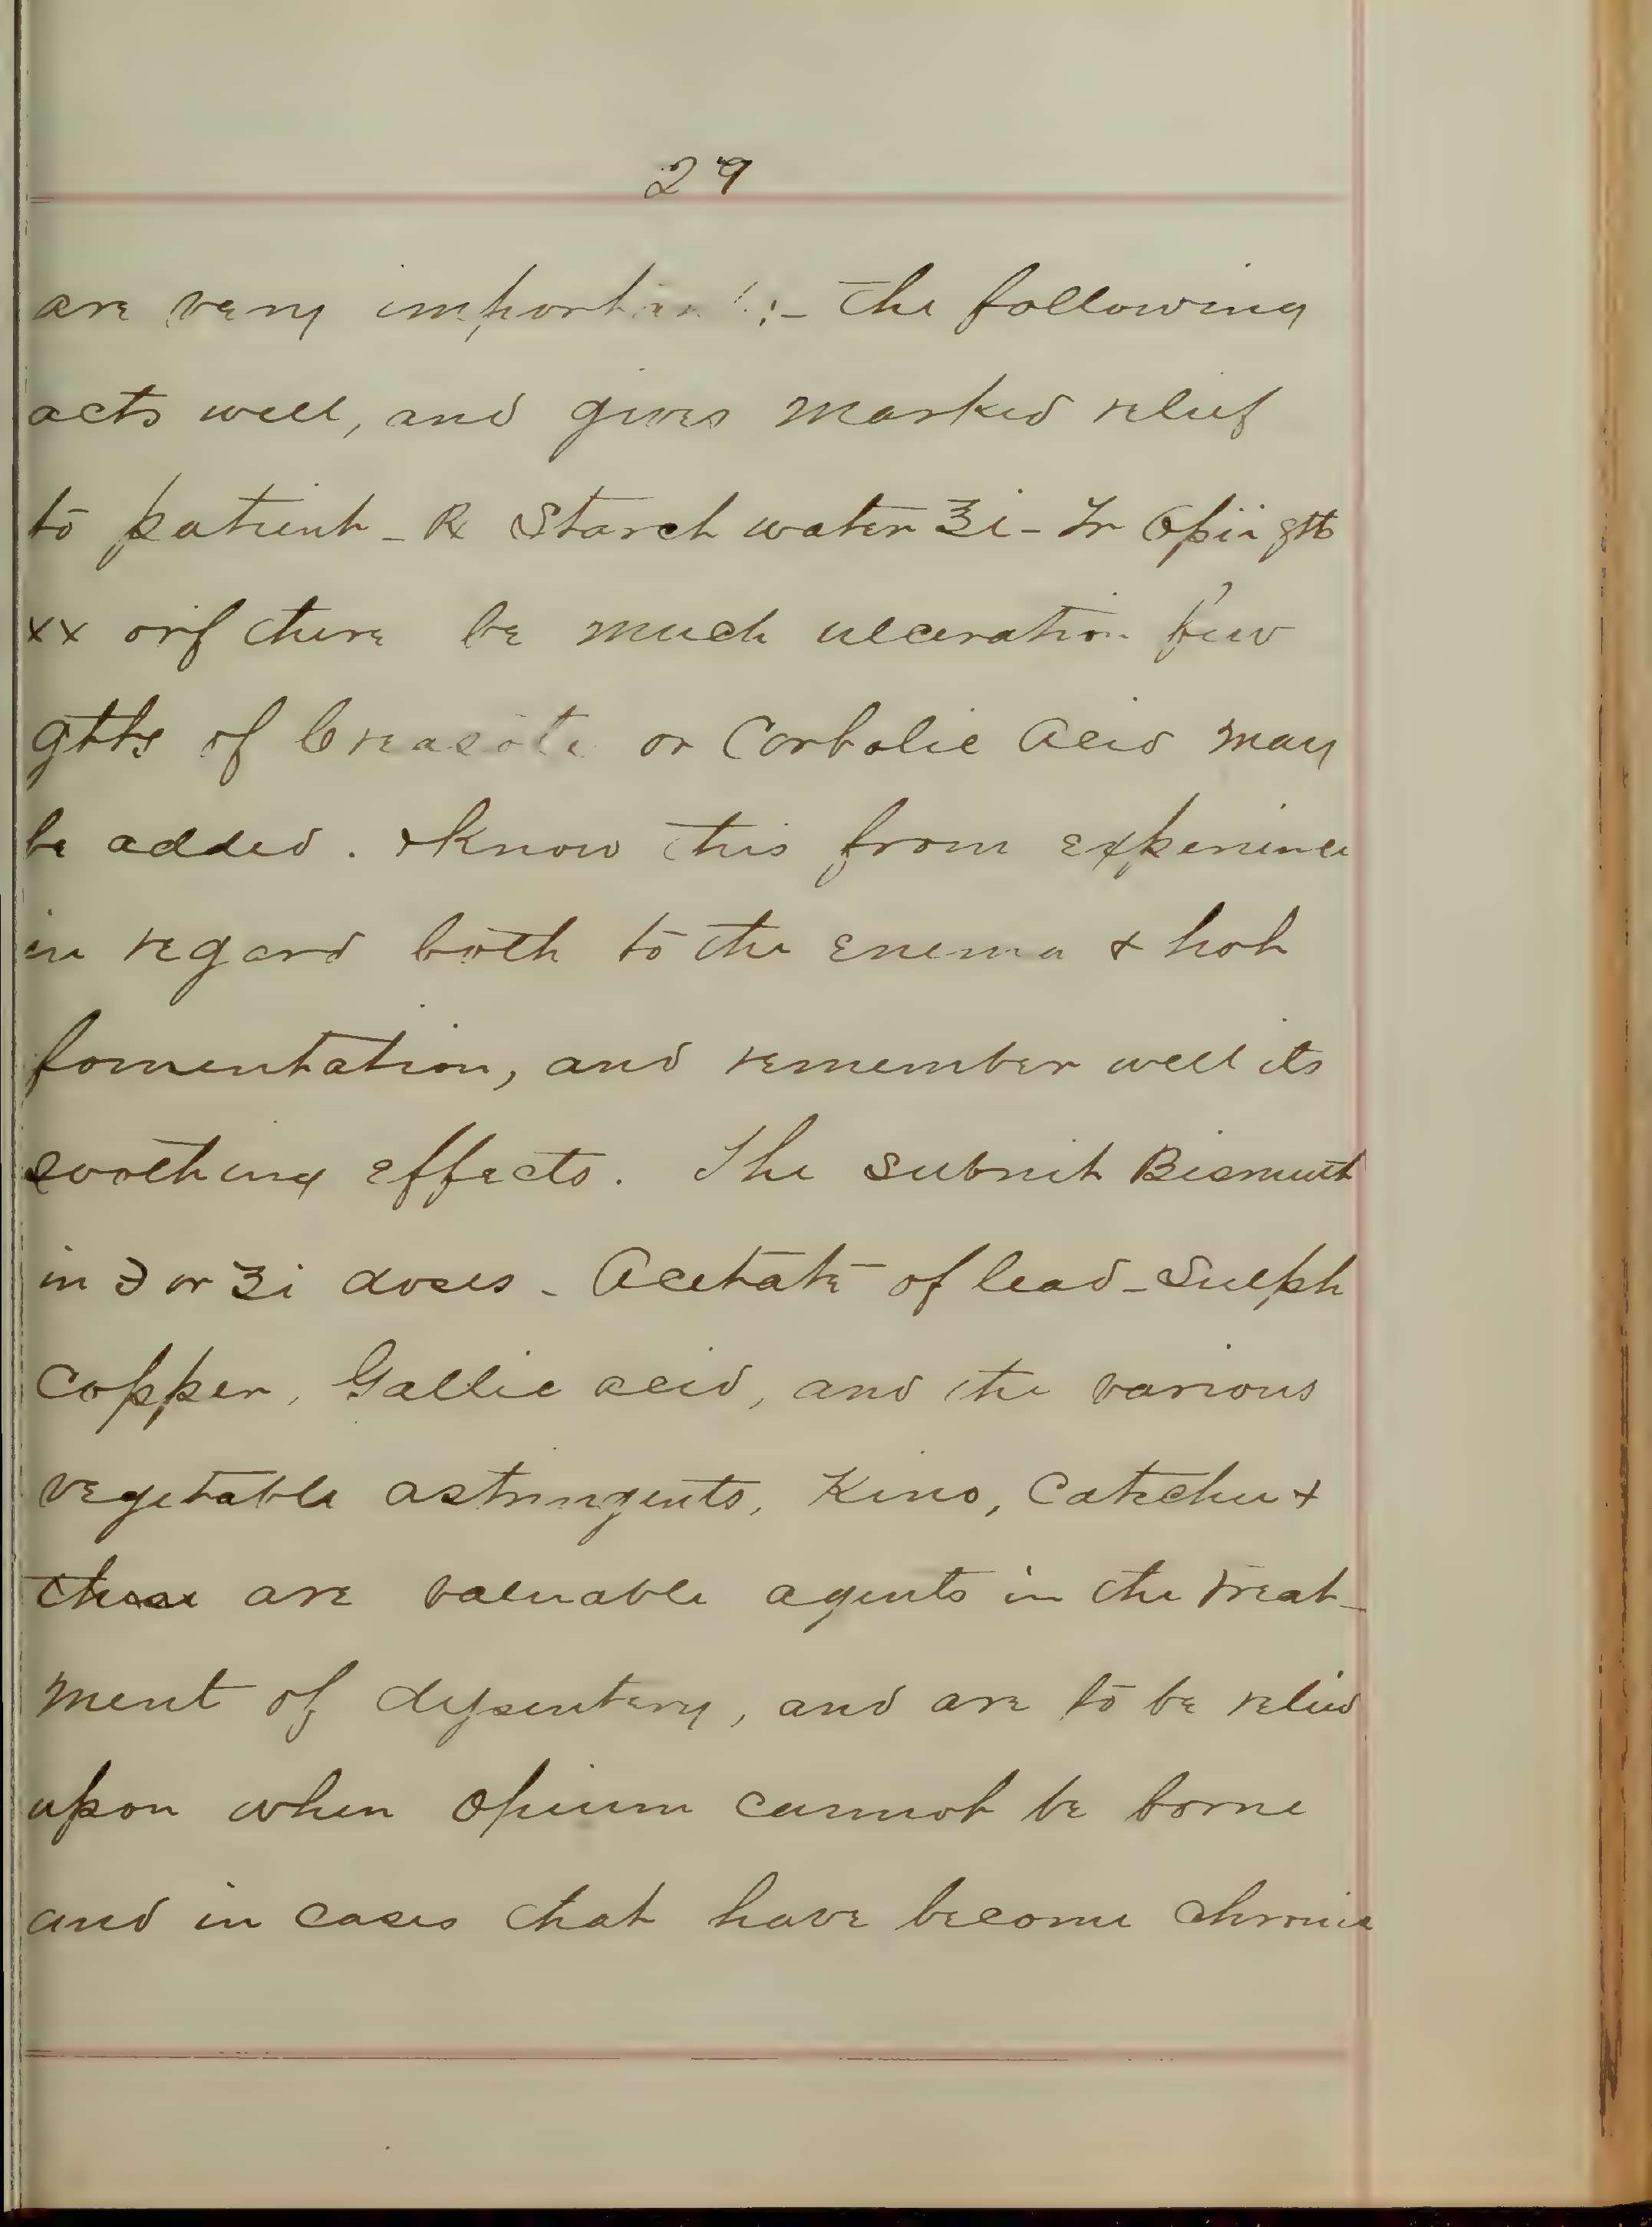 29
are very important:- The following
acts well, and gives marked relief
to patient - ℞ Starch water ʒi - Tr Opii gtts
xx or if there be much ulceration few
gtts of Creasote or Carbolic Acid may
be added. I know this from experience
in regard both to the enema & hot
fomentation, and remember well its
soothing effects. The subnit Bismuth
in ℈ or ʒi doses - Acetate of lead - Sulph
Copper, Gallic acid, and the various
vegetable astringents, Kino, Catechu +
these are valuable agents in the treat-
ment of dysentery, and are to be relied
upon when Opium cannot be borne
and in cases that have become chronic